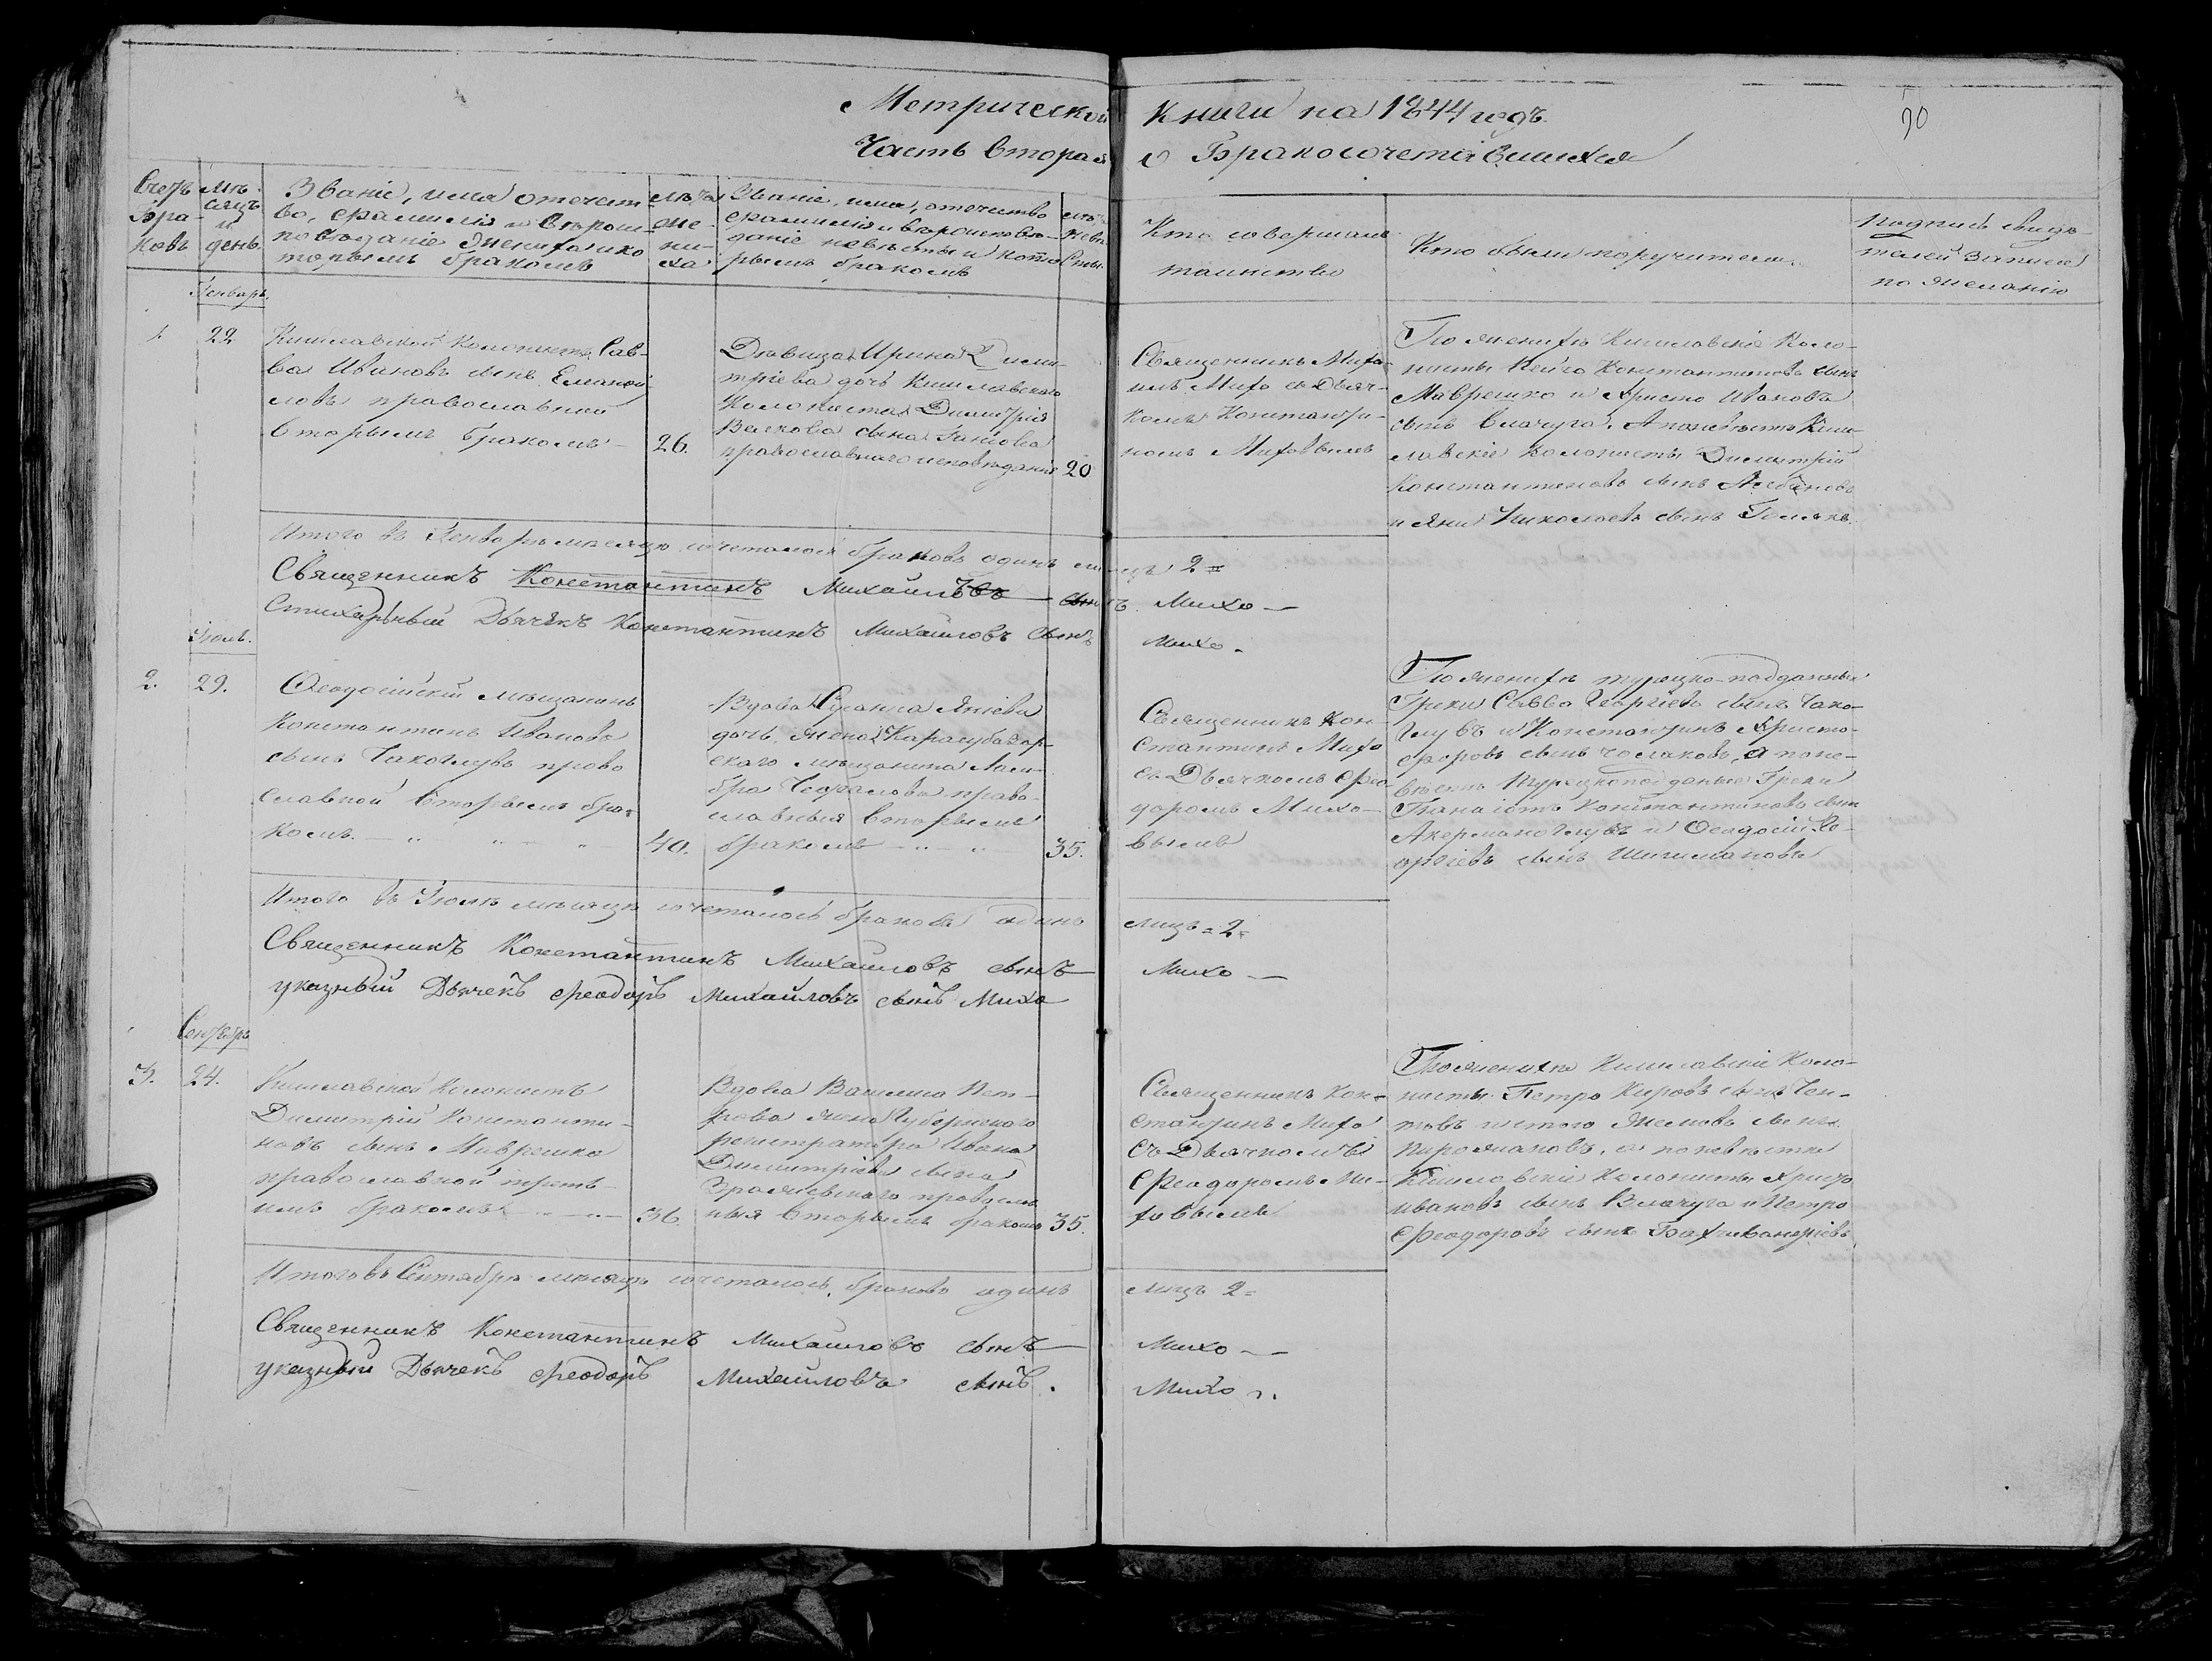 Метрической книги на 1844 годъ.
90
Часть вторая о Бракосочетавшихся
Счетъ Бра-
ковъ
Мѣ-
сяцъ
и
день.
Званіе, имя отечест
во, фамилія и вѣроис-
повѣданіе жениха и ко
торымъ бракомъ
лѣта
же-
ни-
ха
Званіе, имя, отечество
фамилія и вѣроисповѣ-
даніе невѣсты и кото
рымъ бракомъ
лѣт
невѣ
сты
Кто совершалъ
таинство
Кто были поручители.
Подпись свидѣ-
телей записи
по желанію
Генварь.
1
22
Кишлавской Колонистъ Сав-
ва Ивановъ сынъ
православной
вторымъ бракомъ
26.
Дѣвица Ирина Дими-
тріева дочь Кишлавскаго
Колониста Димитрія
сына
православнаго исповѣданія
20
Священникъ Миха-
илъ Михо съ Дьяч-
комъ Константи-
номъ Миховымъ
По женихѣ Кишлавскіе Коло-
нисты Константиновъ сынъ
Мавренко и Христо Ивановъ
сынъ Влачуга. А по невѣстѣ Киш-
лавскіе колонисты Димитрій
Константиновъ сынъ
и Яни Николаевъ сынъ
Итого въ Генварѣ мѣсяцѣ сочеталось браковъ одинъ лицъ 2=
Священникъ Константинъ Михаиловъ сынъ Михо —
Стихарный Дьячекъ Константинъ Михаиловъ сынъ Михо.
Іюль.
2.
29.
Ѳеодосійскій мѣщанинъ
Константинъ Ивановъ
сынъ Чакоглувъ право
славной вторымъ бра-
комъ.
40.
Вдова Янiева
дочь, жена Карасубазар-
скаго мѣщанина
право-
славная вторымъ
бракомъ
35.
Священникъ Кон-
стантинъ Михо
съ Дьячкомъ Ѳео-
доромъ Михо-
вымъ
По женихѣ турецко-подданные
Греки Савва Георгіевъ сынъ Чако-
глувъ и Константинъ Христо-
форовъ сынъ Чолаковъ, а по не-
вѣстѣ Турецкоподданые Греки
Панаіотъ Константиновъ сынъ
Акерманоглувъ и Ѳеодосій Ге-
оргіевъ сынъ Шишмановъ
Итого въ Іюлѣ мѣсяцѣ сочеталось браковъ одинъ лицъ=2=
Священникъ Константинъ Михаиловъ сынъ Михо —
указный Дьячекъ Ѳеодоръ Михаиловъ сынъ Михо
Сентябрь
3.
24.
Кишлавской Колонистъ
Димитрій Константи-
новъ сынъ Мавренко
православной треть-
имъ бракомъ
36.
Вдова Василиса Пет-
рова жена Губернскаго
регистратора Ивана
Димитріева сына
православ
ныя вторымъ бракомъ
35.
Священникъ Кон-
стантинъ Михо
съ Дьячкомъ
Ѳеодоромъ Ми-
ховымъ
По женихѣ Кишлавскіе Коло-
нисты Петро Кировъ сынъ Чен-
товъ и Стого Желювъ сынъ
Пирожановъ, а по невѣстѣ
Кишлавскіе Колонисты Христо
Ивановъ сынъ Влачуга и Петро
Ѳеодоровъ сынъ
Итого въ Сентябрѣ мѣсяцѣ сочеталось браковъ одинъ лицъ 2=
Священникъ Константинъ Михаиловъ сынъ Михо —
указный Дьячекъ Ѳеодоръ Михаиловъ сынъ. Михо